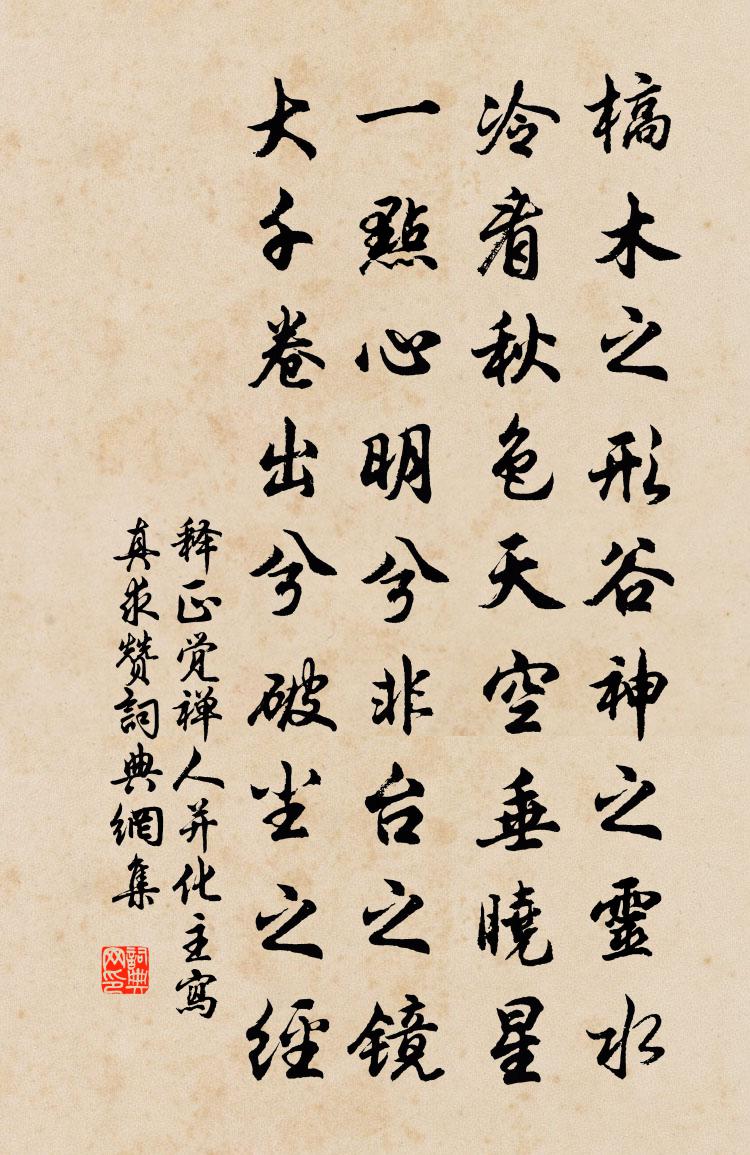 槁木之形谷神之靈水
冷看秋色天空垂曉星
一點心明兮非台之鏡
大千卷出兮破尘之經
释正觉禅人并化主寫
真求赞詞典網集
詞典网印